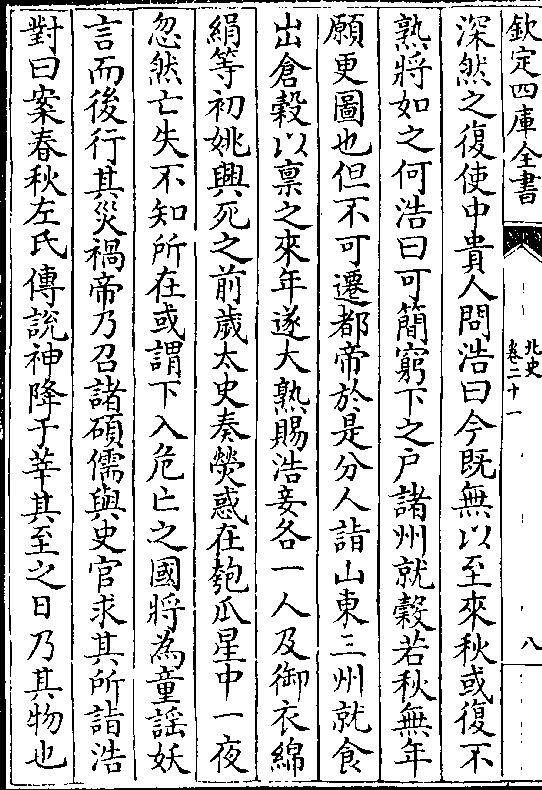 欽定四庫全書
北史
卷二十一
八
深然之復使中貴人問浩曰今既無以至來秋或復不
熟將如之何浩曰可簡窮下之户諸州就穀若秋無年
願更圖也但不可遷都帝於是分人詣山東三州就食
出倉穀以稟之來年遂大熟賜浩妾各一人及御衣綿
絹等初姚興死之前歲太史奏熒惑在匏瓜星中一夜
忽然亡失不知所在或謂下入危亡之國將為童謡妖
言而後行其災禍帝乃召諸碩儒與史官求其所詣浩
對曰案春秋左氏傳説神降于莘其至之日乃其物也